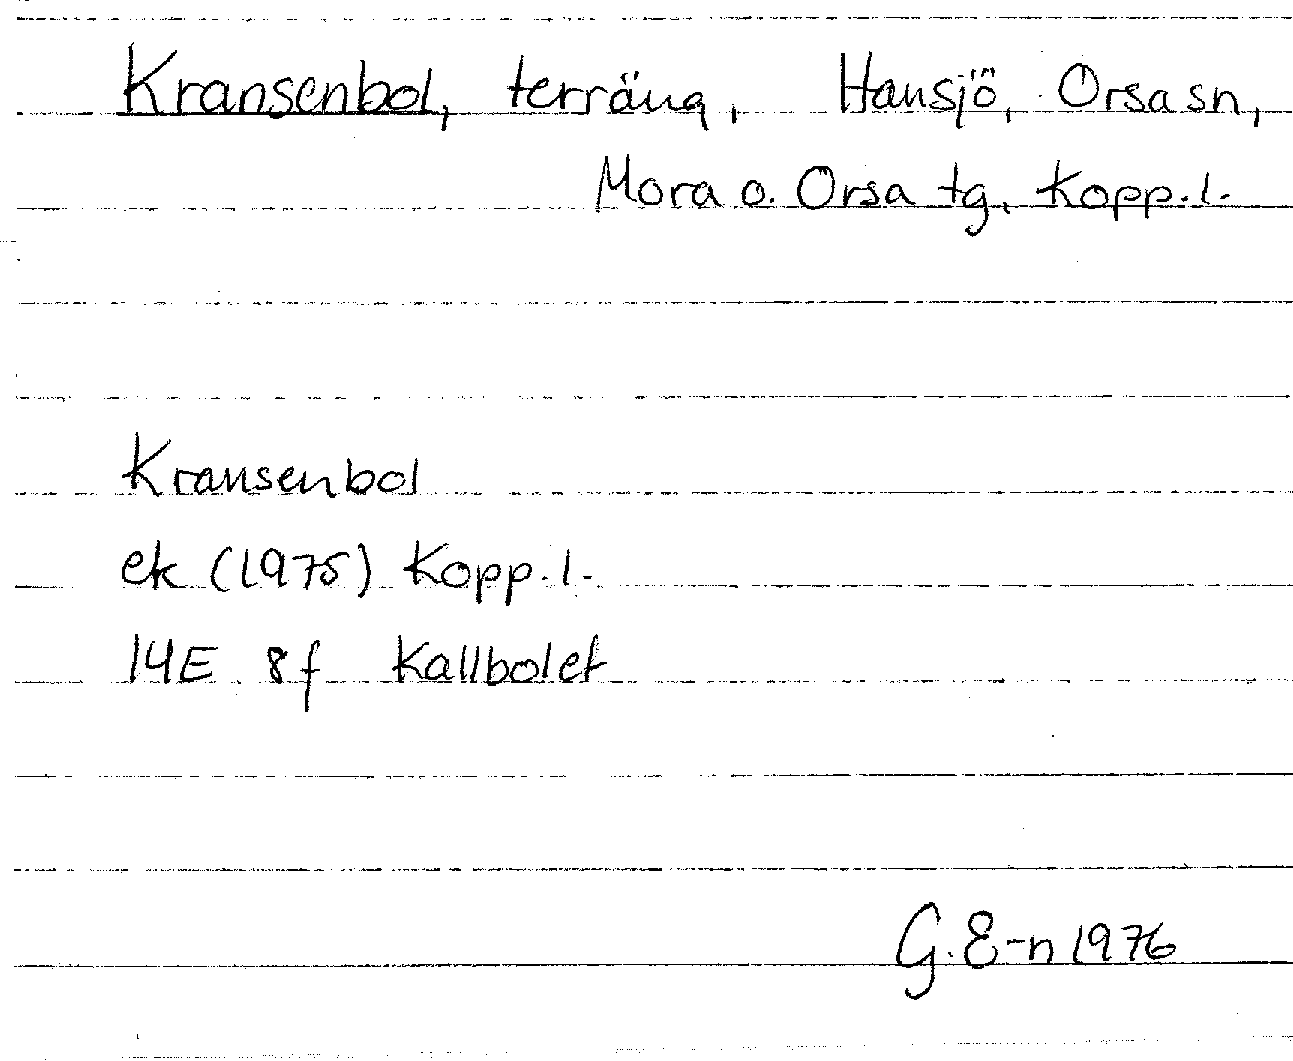 Kransenbol, terräng, Hansjö, Orsa sn,
Mora o. Orsa tg, Kopp. l.
Kransenbol
ek (1975) Kopp. l.
14E 8f Kallbolet
G. E-n 1976